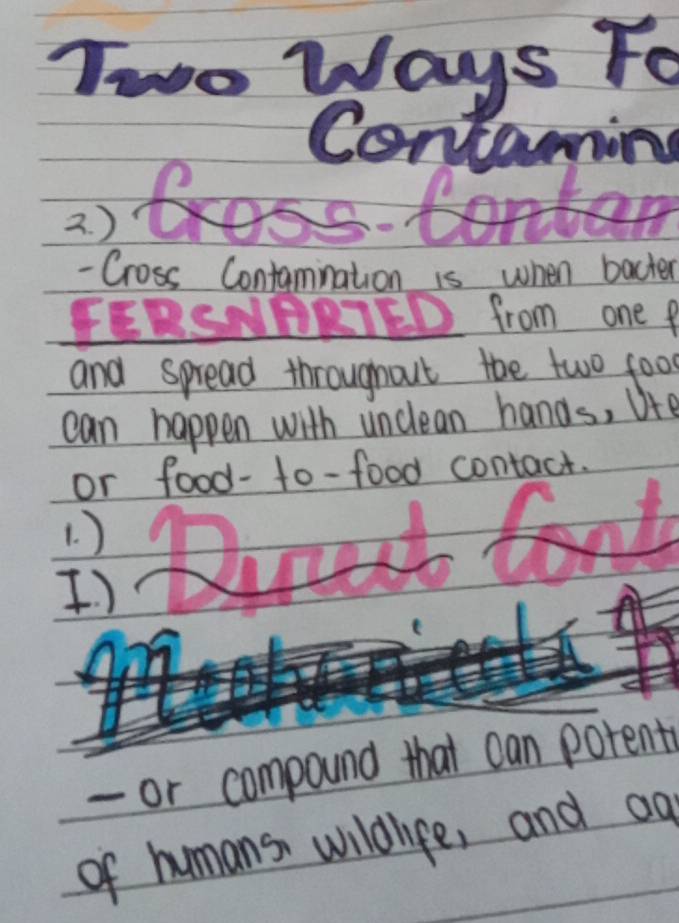 Two Ways Fo
Contamina
2.) Cross-Contam
-Cross Contamination is when bacter
FERSNARTED from one f
and spread throughout the two food
can happen with unclean hands, Ute
or food-to-food contact.
1.)
I.) Direct Conta
Mechanicals
-or compound that can potenti
of humans, wildlife, and aq